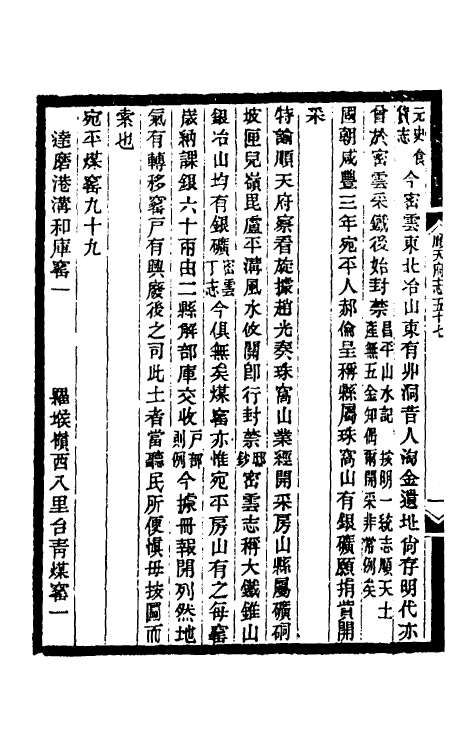 元史食貨志今密雲東北冶山東有丱洞昔人淘金遺址尙存明代亦
曾於密雲采鐵後始封禁昌平山水記按明一統志順天土產無五金知偶爾開采非常例矣
國朝咸豐三年宛平人郝倫呈稱縣屬珠窩山有銀礦願捐貲開
采
特諭順天府察看旋據趙光奏珠窩山業經開采房山縣屬礦硐
坡匣兒嶺毘盧平溝風水攸關卽行封禁邸鈔密雲志稱大鐵錐山
銀冶山均有銀礦密雲丁志今俱無矣煤窰亦惟宛平房山有之每窰
歲納課銀六十兩由二縣解部庫交收戶部則例今據冊報開列然地
氣有轉移窰戶有興廢後之司此土者當聽民所便愼毋按圖而
索也
宛平煤窰九十九
達磨港溝和庫窰一 羅堠嶺西入里台靑煤窰一
順天府志五十七